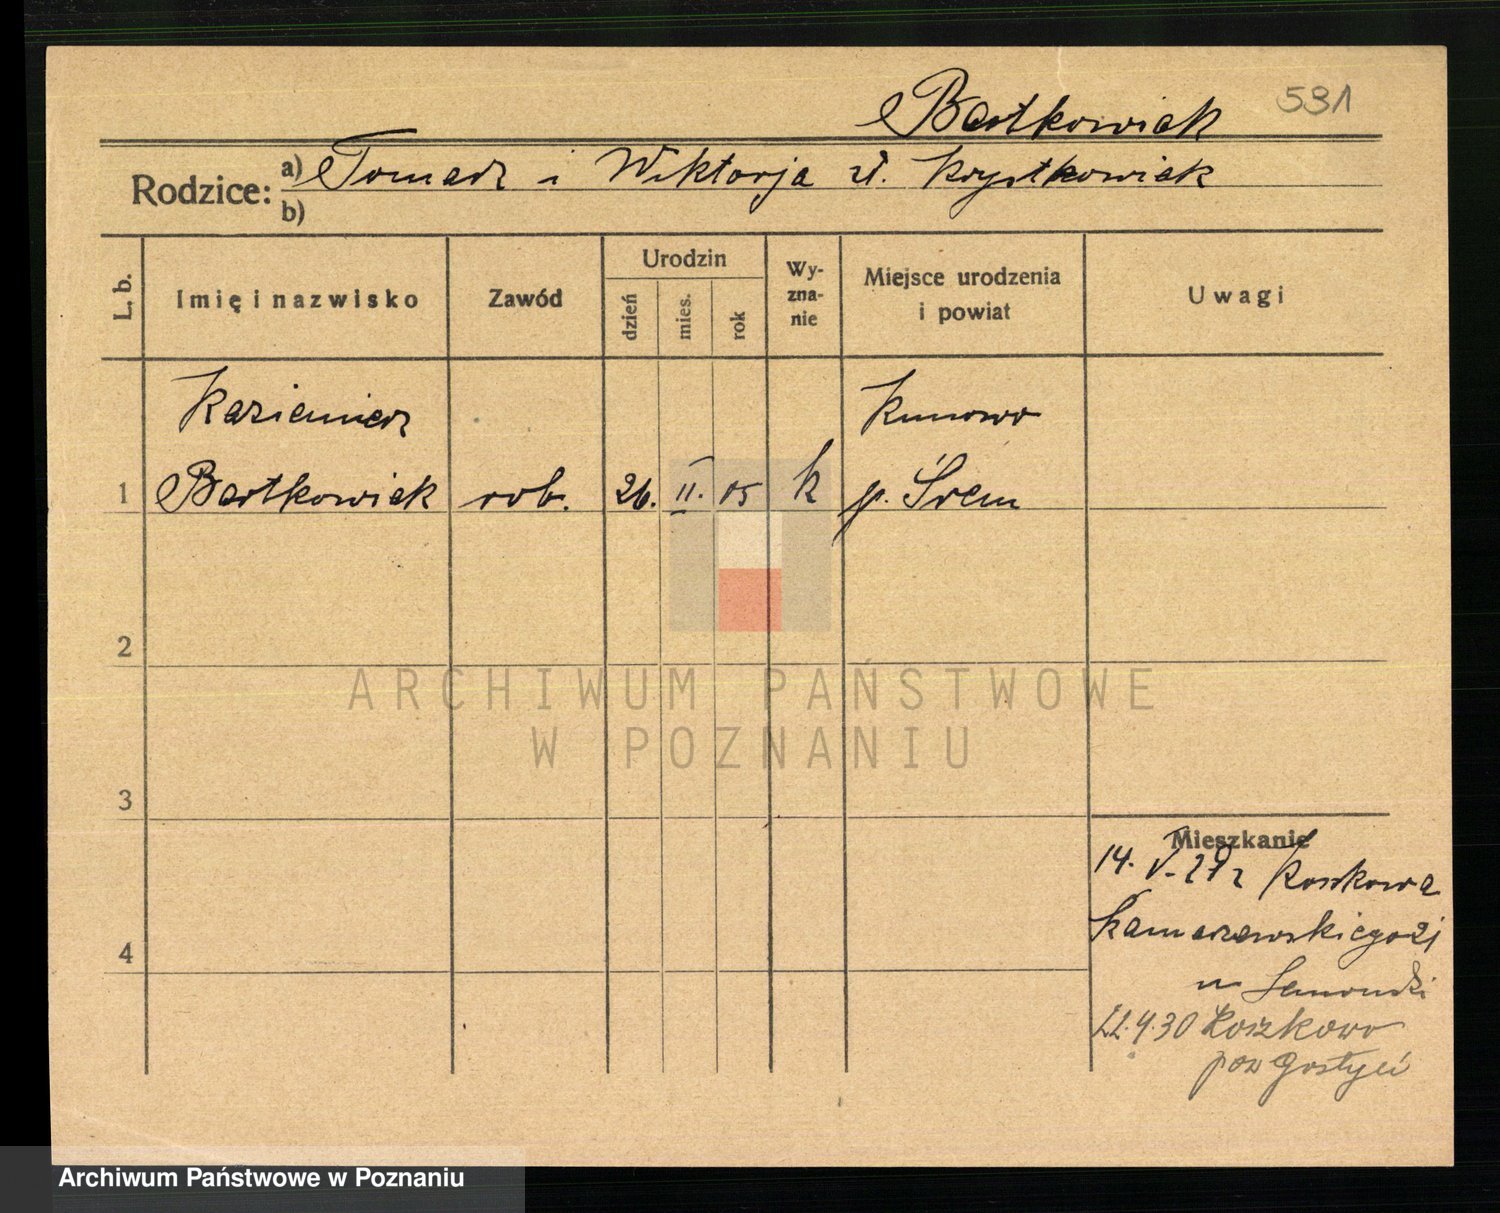 531
Bartkowiak
Rodzice: a) Tomasz i Wiktorja z d. Krystkowiak
b)
L. b. Imię i nazwisko Zawód Urodzin dzień mies. rok Wyznanie Miejsce urodzenia i powiat Uwagi
Kazimierz Kunowo
1 Bartkowiak rob. 26. II. 05 k p. Śrem
2
ARCHIWUM PAŃSTWOWE
W POZNANIU
3
Mieszkanie
14. V. 29 z Koszkowa
21
4
u
22.4.30 Koszkowo
pow Gostyń
Archiwum Państwowe w Poznaniu